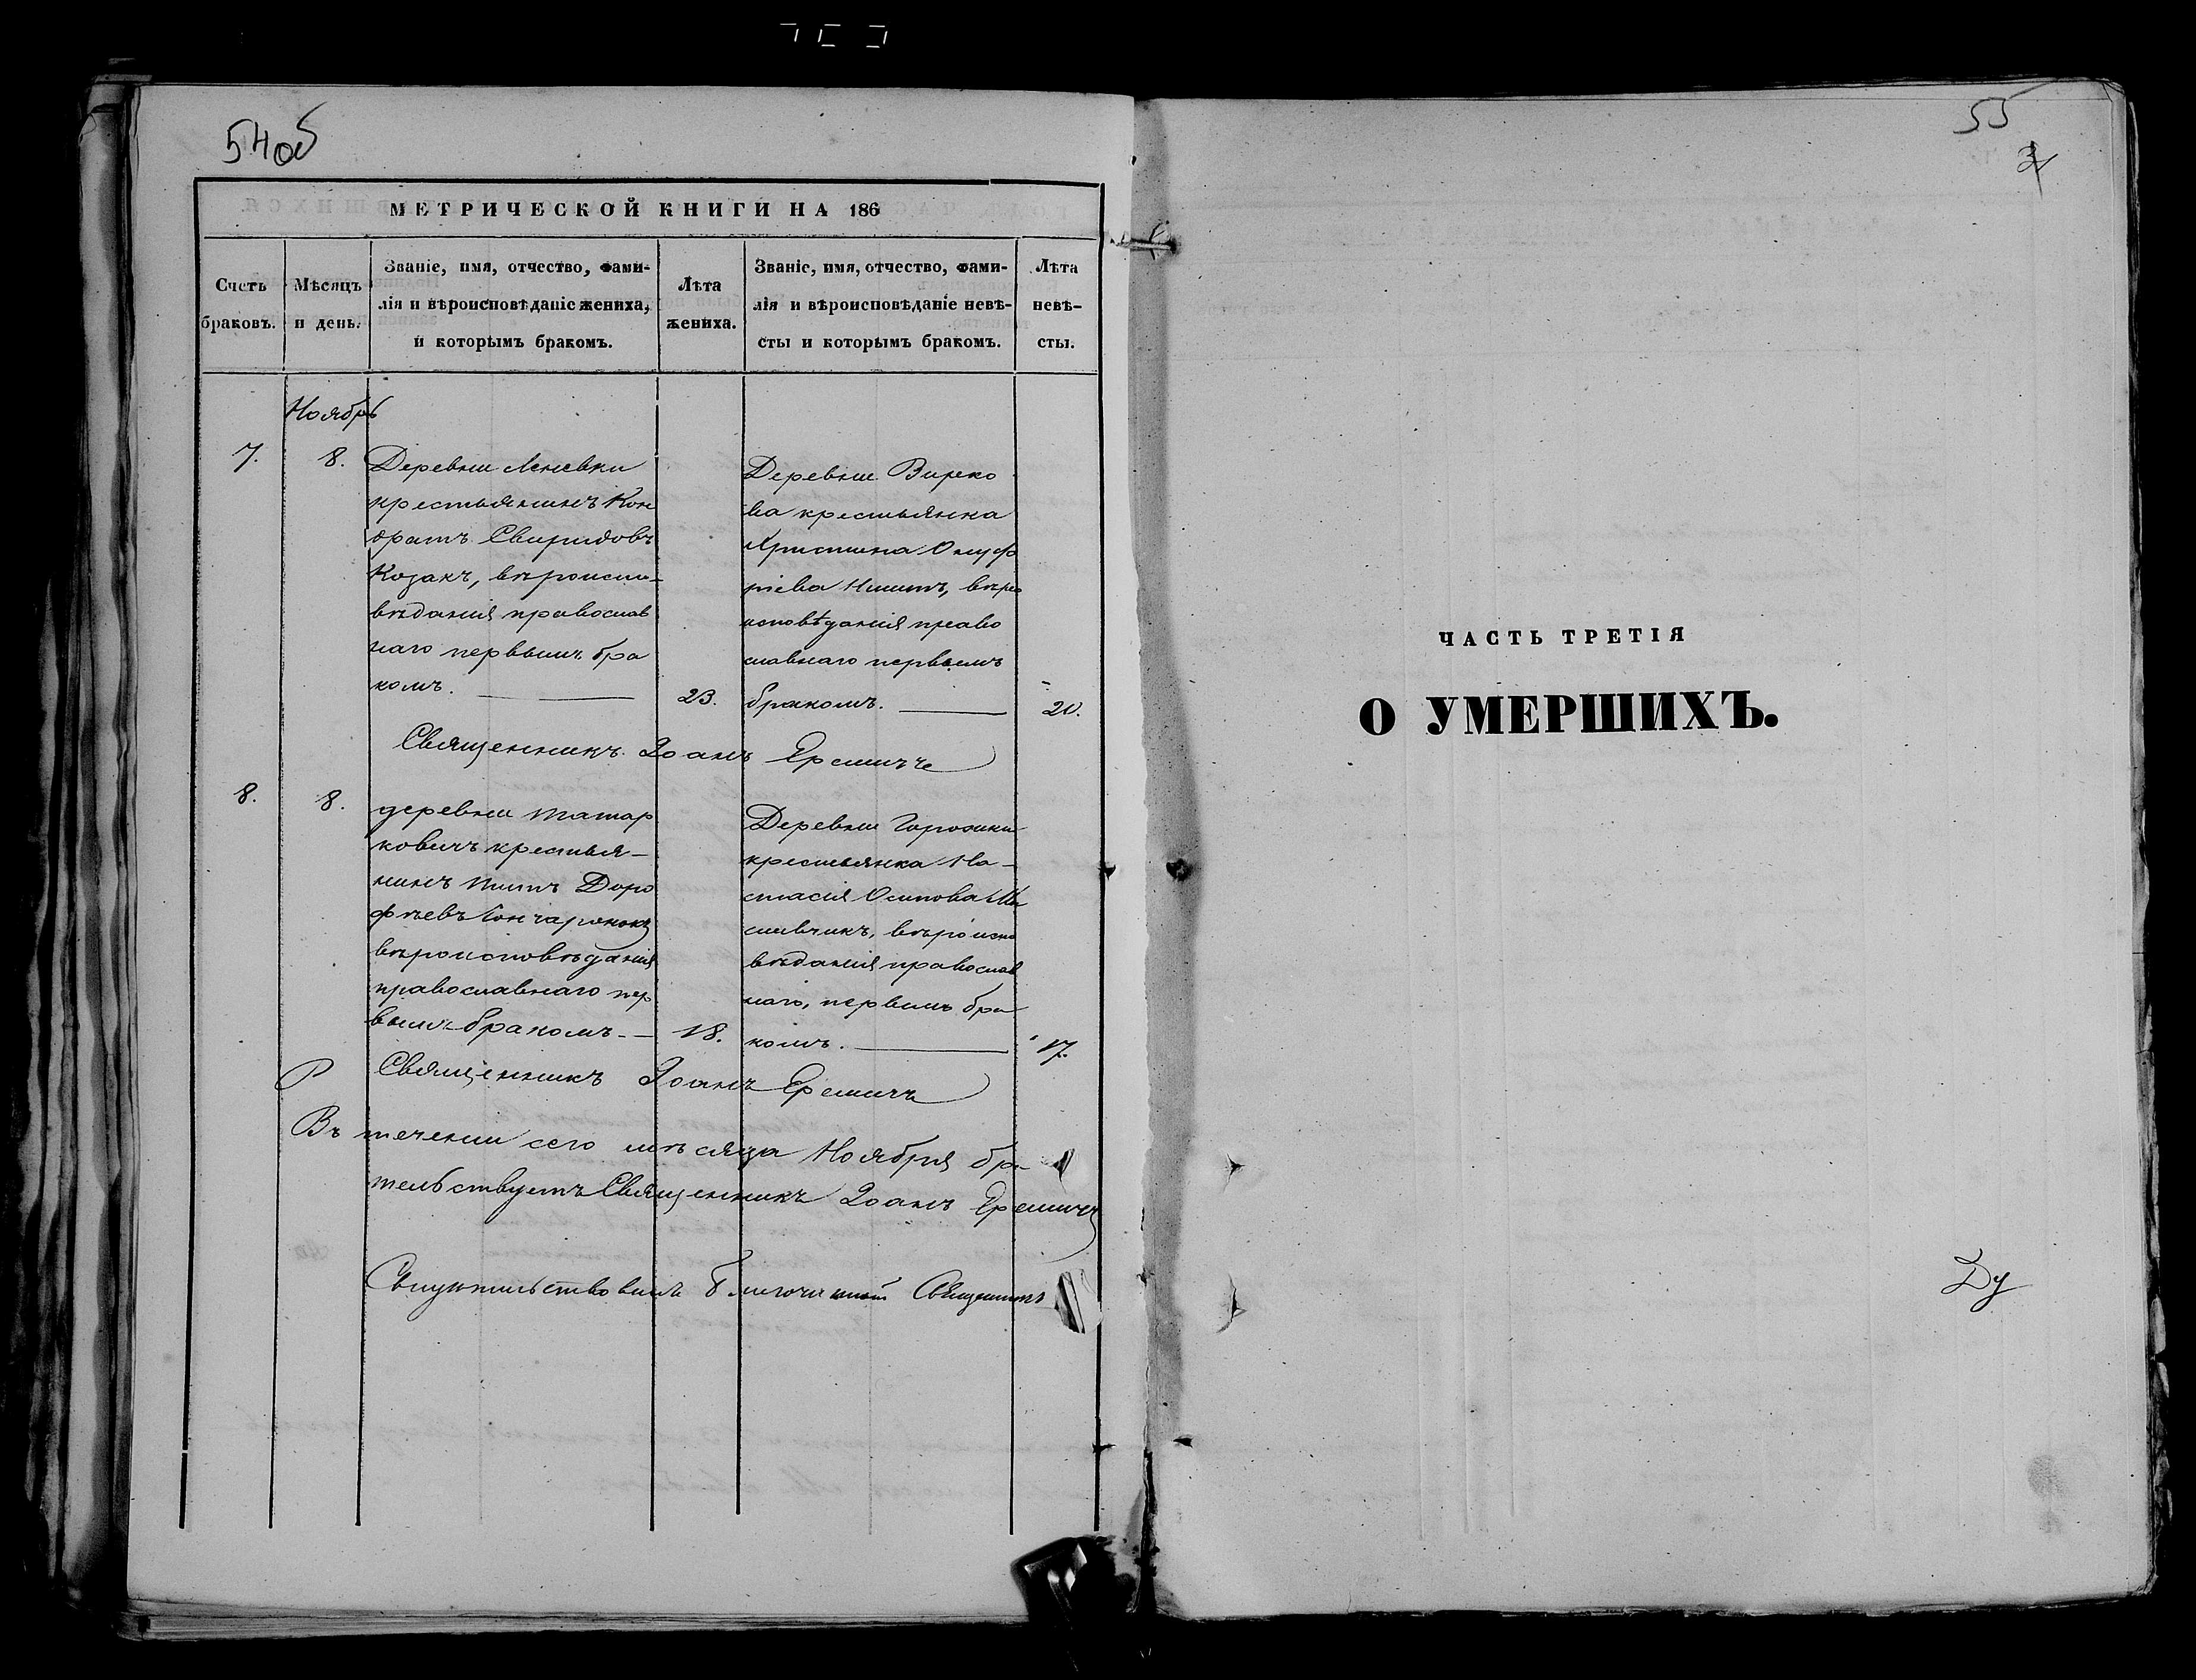 54об
МЕТРИЧЕСКОЙ КНИГИ НА 186
Счетъ
браковъ.
Мѣсяцъ
и день.
Званіе, имя, отчество, фами-
лія и вѣроисповѣданіе жениха,
и которымъ бракомъ.
Лѣта
жениха.
Званіе, имя, отчество, фами-
лія и вѣроисповѣданіе невѣ-
сты и которымъ бракомъ.
Лѣта
невѣ-
сты.
Ноябрь
7.
8.
Деревни
крестьянинъ Кон
дратъ Свиридовъ
Козакъ, вѣроиспо-
вѣданія православ
наго первымъ бра
комъ.
23.
Деревни Вирко
ва крестьянка
Христина Онуф
ріева вѣро
исповѣданія право
славнаго первымъ
бракомъ.
20.
Священникъ Іоанъ Еремичъ
8.
8.
деревни Татар
ковичъ крестья-
нинъ Титъ Доро
фѣевъ Гончаронокъ
вѣроисповѣданія
православнаго пер
вымъ бракомъ
18.
Деревни
крестьянка На-
стасія Осипова
вѣроиспо
вѣданія православ
наго, первымъ бра
комъ.
17.
Священникъ Іоанъ Еремичъ
Въ теченіи сего мѣсяца Ноября
тельствуетъ Священникъ Іоанъ Еремичъ
Свидѣтельствовалъ Благочинный Священникъ
55
ЧАСТЬ ТРЕТІЯ
О УМЕРШИХЪ.